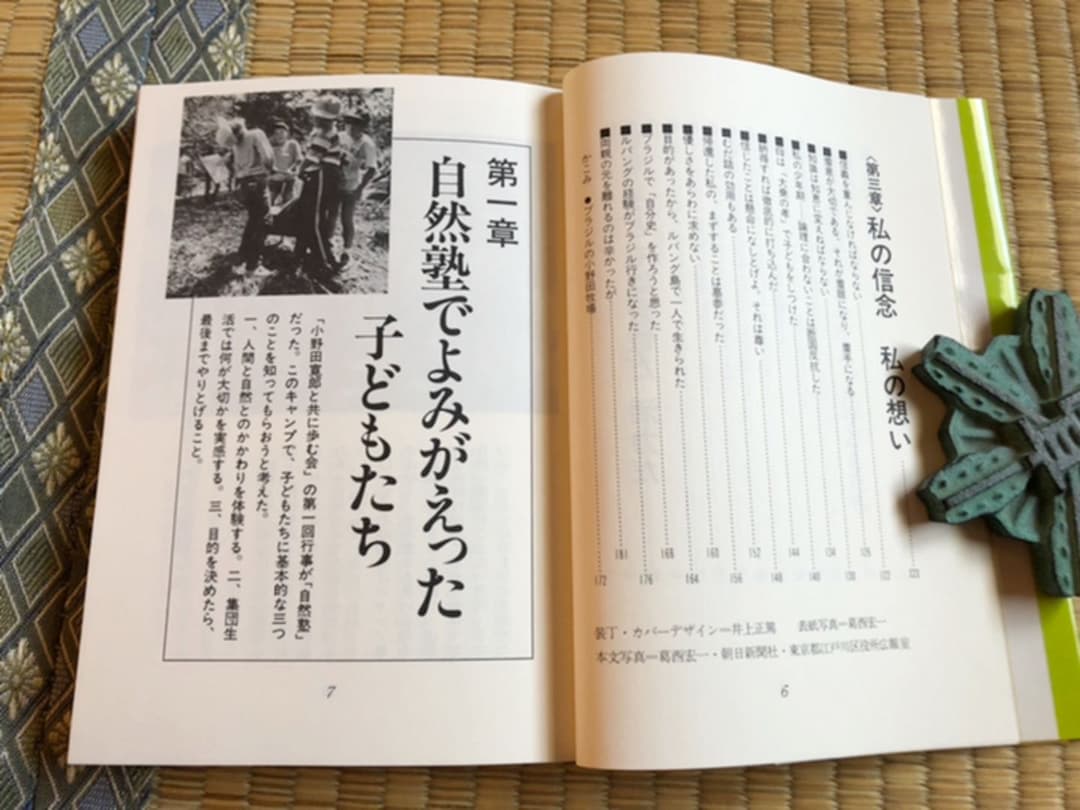 〈第三章〉私の信念 私の想い……123
■信義を重んじなければならない……132
■善意が大切である、それが奮闘になり、苦手になる……126
■知識は知恵に変えねばならない……130
■私の少年期──論理に合わないことは断固反抗した……134
■母は、「大儀の孝」で子どもをしつけた……140
■納得すれば徹底的に打ち込んだ……144
■信じたことは懸命になしとげよ、それは尊い……148
■むだ話の効用もある……152
■帰還した私の、まずすることは墓参だった……156
■優しさをあらわに求めない……160
■目的があったから、ルバング島で一人で生きられた……164
■ブラジルで「自分史」を作ろうと思った……168
■ルバングの経験がブラジル行きになった……176
■両親の元を離れるのは辛かったが……181
かこみ ●ブラジルの小野田牧場……172
装丁・カバーデザイン=井上正篤 表紙写真=葛西宏一
本文写真=葛西宏一・朝日新聞社・東京都江戸川区役所広報室
6
第一章
自然塾でよみがえった
子どもたち
「小野田寛郎と共に歩む会」の第一回行事が「自然塾」
だった。このキャンプで、子どもたちに基本的な三つ
のことを知ってもらおうと考えた。
一、人間と自然とのかかわりを体験する。二、集団生
活では何が大切かを実感する。三、目的を決めたら、
最後までやりとげること。
7